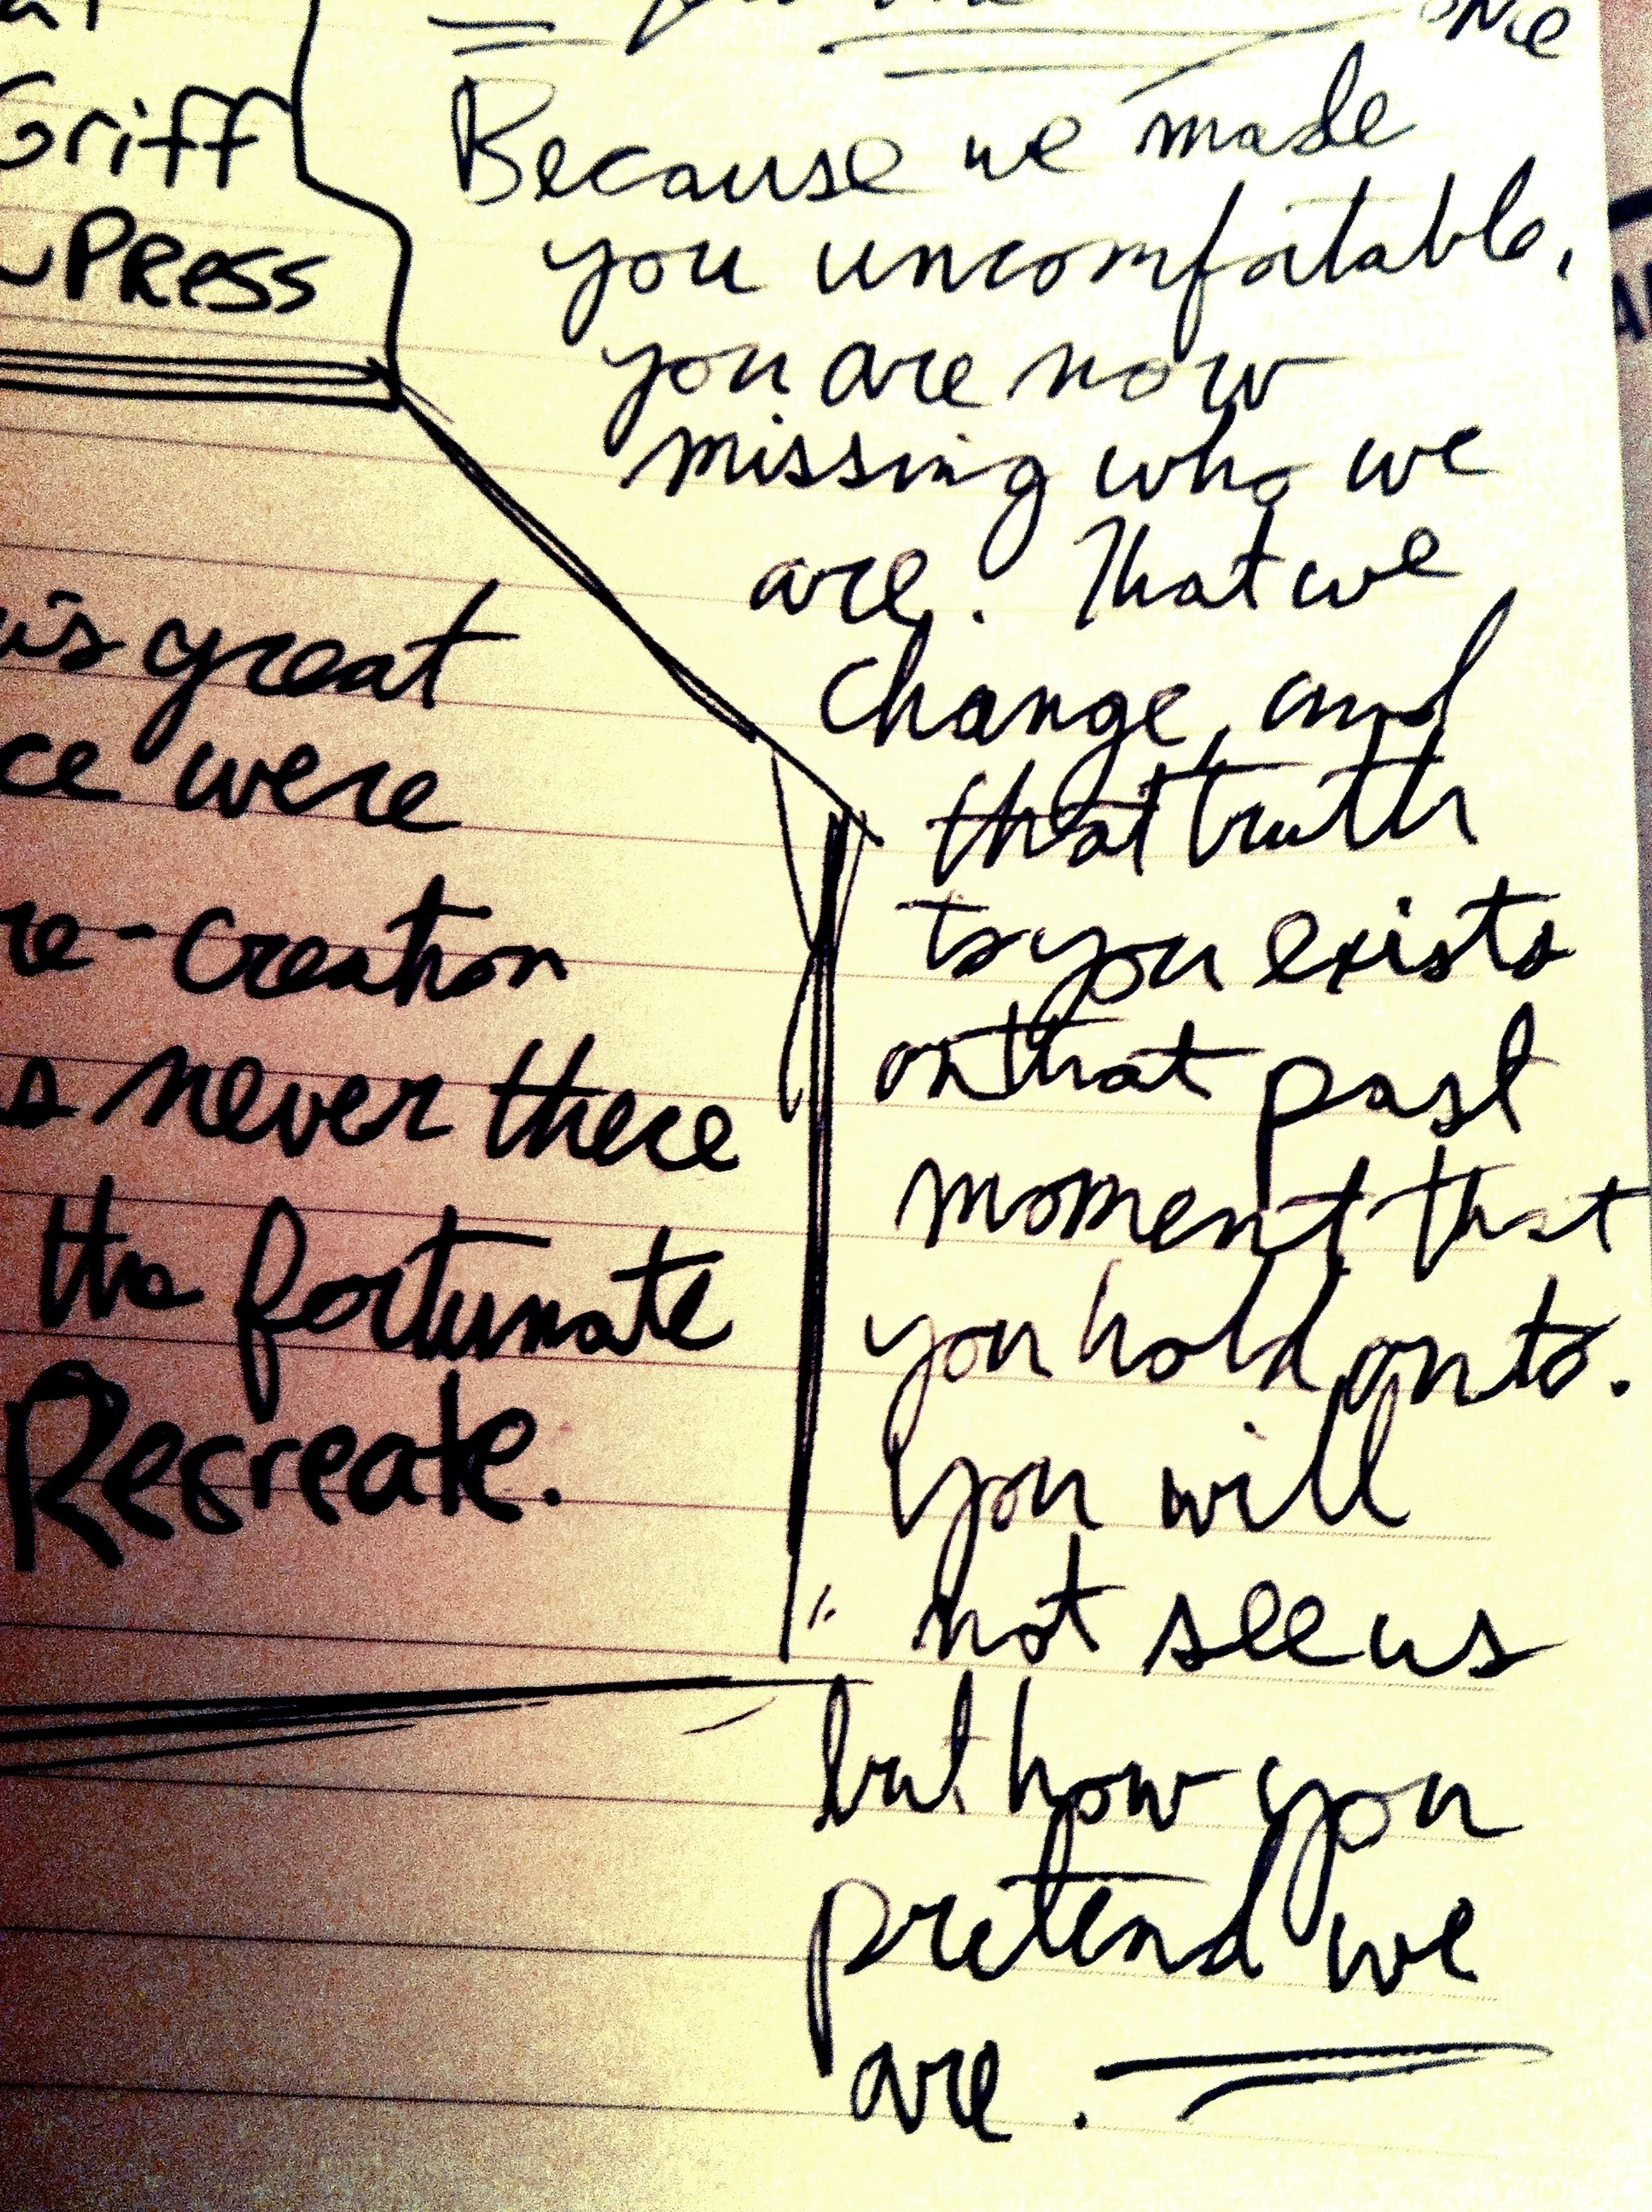 Griff
PRESS
is great
were
re-creation
never there
the fortunate
Recreate.
Because we made
you uncomfortable,
you are now
missing who we
are. That we
change, and
that truth
to you exists
on that past
moment that
you hold onto.
You will
not see us
but how you
pretend we
are.